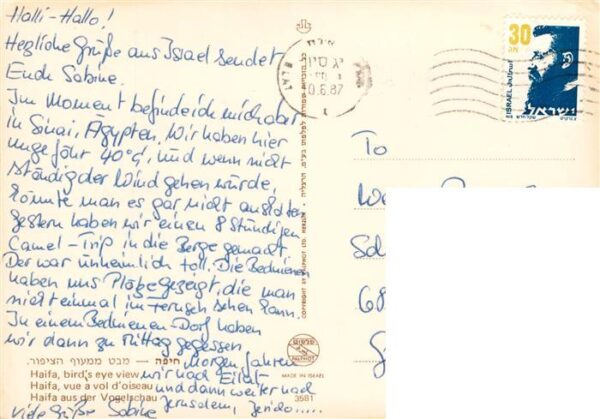 Halli-Hallo!
Herzliche Grüße aus Israel sendet
Euch Sabine.
Im Moment befinde ich mich aber
in Sinai, Ägypten. Wir haben hier
ungefähr 40°C, und wenn nicht
ständig der Wind gehen würde,
könnte man es gar nicht aushalten
Gestern haben wir einen 8 stündigen
Camel-Trip in die Berge gemacht.
Der war unheimlich toll. Die Beduinen
haben uns Plätze gezeigt, die man
nicht einmal im Fernseh sehen kann.
In einem Beduinen-Dorf haben
wir dann zu Mittag gegessen.
Morgen fahren
wir nach Eilat
und dann weiter nach
Jerusalem, Jericho.....
Viele Grüße Sabine
חיפה — מבט ממעוף הציפור.
Haifa, bird's eye view
Haifa, vue à vol d'oiseau
Haifa aus der Vogelschau
MADE IN ISRAEL
3581
PALPHOT
COPYRIGHT BY PALPHOT LTD. HERZLIA
.6.87
30
ISRAEL
ישראל
To
We
Sch
68